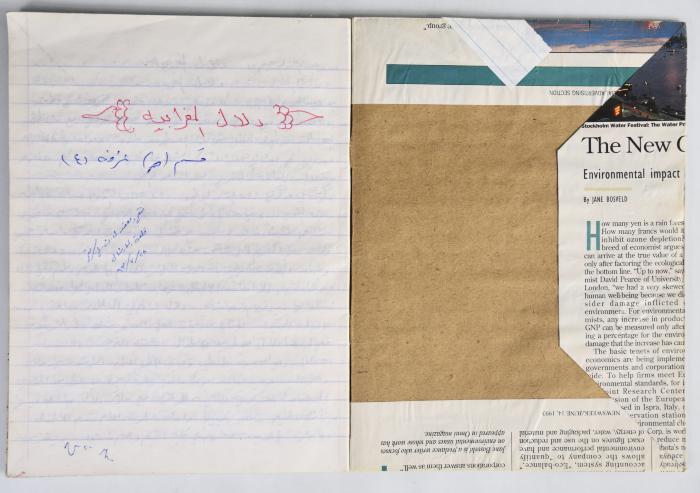 دلال المغرابية
قسم (ج) غرفة (٤)
group."
AL ADVERTISING SECTION
Stockholm Water Festival: The Water Pr
The New C
Environmental impact
By JANE BOSVELD
How many yen is a rain fores
How many francs would it
inhibit ozone depletion?
breed of economist argues
can arrive at the true value of a
only after factoring the ecological
the bottom line. "Up to now," say
mist David Pearce of University,
London, "we had a very skewed
human well-being because we di
sider damage inflicted
environment. For environmental
mists, any increase in produc
GNP can be measured only after
ing a percentage for the enviro
damage that the increase has cau
The basic tenets of enviro
economics are being impleme
governments and corporation
wide. To help firms meet Eu
ironmental standards, for i
oint Research Center
sion of the European
sed in Ispra, Italy,
ervation station
ironmental che
NEWSWEEK/JUNE 14, 1993
Jane Bosveld is a freelance writer who focuses
on environmental issues and whose work has
appeared in Omni magazine.
corporations answer them as well."
accounting system, "Eco-balance,"
allows the company to "quantify
environmental performance and have
exact figures on the use and reduction
of energy, water, packaging and material